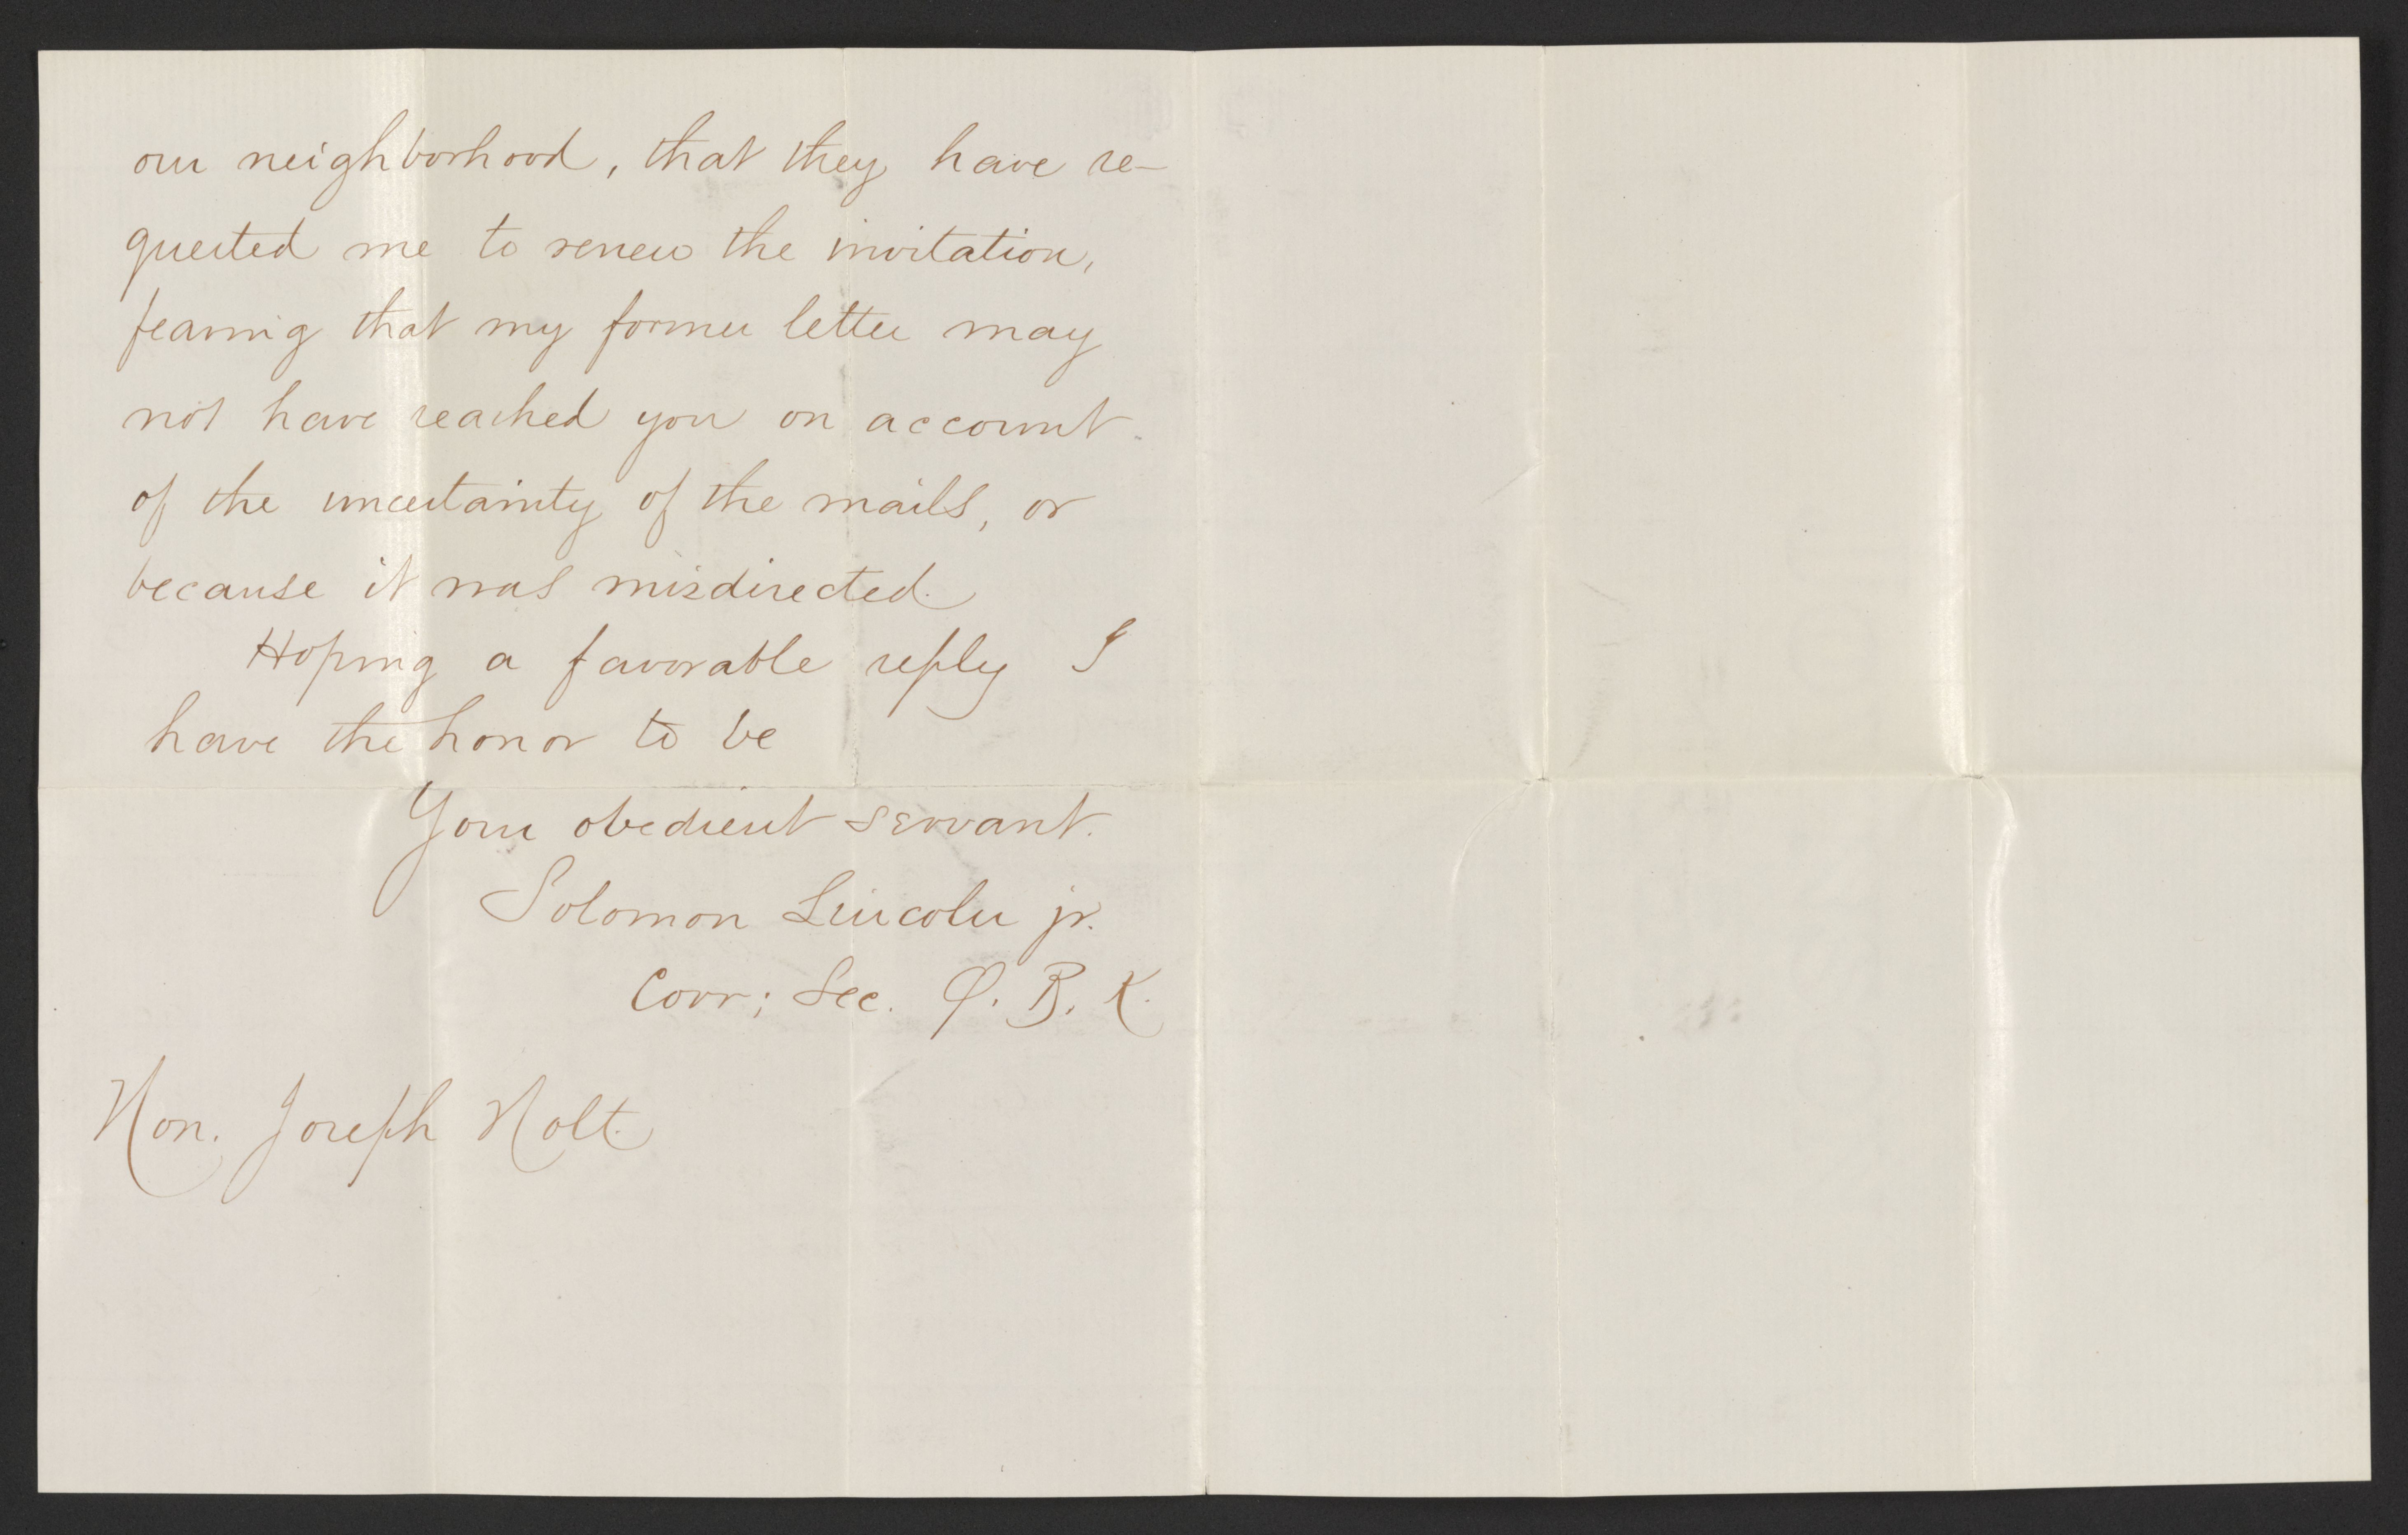 our neighborhood, that they have re-
quested me to renew the invitation,
fearing that my former letter may
not have reached you on account
of the uncertainty of the mails, or
because it was misdirected.
Hoping a favorable reply I
have the honor to be
Your obedient servant.
Solomon Lincoln jr.
Corr; Sec. Φ. B. K.
Hon. Joseph Holt.